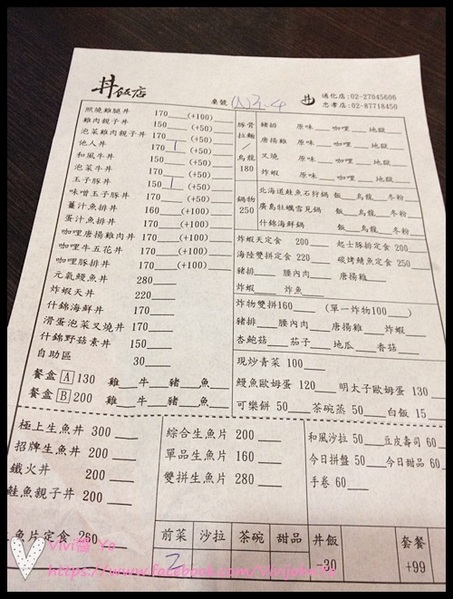 丼飯店
桌號 (A)3-4
通化店:02-27045606
忠孝店:02-87718450
照燒雞腿丼 170___(+100)___
雞肉親子丼 150___(+50)___
泡菜雞肉親子丼 170___(+50)___
他人丼 170_1_(+50)___
和風牛丼 150___(+50)___
泡菜牛丼 170___(+50)___
玉子豚丼 150_1_(+50)___
味噌玉子豚丼 170___(+50)___
薑汁魚排丼 160___(+100)___
蛋汁魚排丼 170___(+100)___
咖哩唐揚雞肉丼 170___(+100)___
咖哩牛五花丼 170___(+100)___
咖哩豚排丼 170___(+100)___
元氣鰻魚丼 280___
炸蝦天丼 220___
什錦海鮮丼 170___
滑蛋泡菜叉燒丼 170___
什錦野菇素丼 150___
自助區 30___
餐盒 A 130 雞___牛___豬___魚___
餐盒 B 200 雞___牛___豬___魚___
豚骨拉麵/烏龍 180
豬排 原味___咖哩___地獄___
唐揚雞 原味___咖哩___地獄___
叉燒 原味___咖哩___地獄___
炸蝦 原味___咖哩___地獄___
鍋物 250
北海道鮭魚石狩鍋 飯___烏龍___冬粉___
廣島牡蠣雪見鍋 飯___烏龍___冬粉___
什錦海鮮鍋 飯___烏龍___冬粉___
炸蝦天定食 200___ 起士豚排定食 200___
海陸雙拼定食 220___ 碳烤鯖魚定食 250___
豬排___腰內肉___唐揚雞___
炸蝦___炸魚___
炸物雙拼160___ (單一炸物100___)
豬排___腰內肉___唐揚雞___炸蝦___
杏鮑菇___茄子___地瓜___香菇___
現炒青菜 100___
鰻魚歐姆蛋 130___ 明太子歐姆蛋 130___
可樂餅 50___茶碗蒸 50___白飯 15___
極上生魚丼 300___
招牌生魚丼 200___
鐵火丼 200___
鮭魚親子丼 200___
魚片定食 260___
綜合生魚片 200___
單品生魚片 160___
雙拼生魚片 280___
和風沙拉 50___豆皮壽司 60___
今日拼盤 50___今日甜品 60___
手卷 60___
前菜 沙拉 茶碗 甜品 丼飯 套餐
2 30 +99
vivi醬 Yo